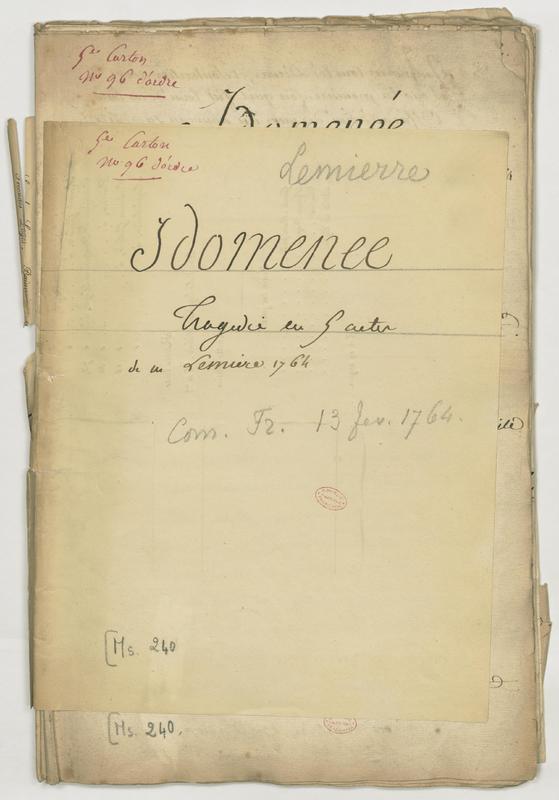 5e Carton
No 96 d'ordre
Idomenée
5e Carton
No 96 d'ordre
Lemierre
Idomenee
Tragedie en 5 actes
de m Lemiere 1764
Com. Fr. 13 fev. 1764.
[Ms. 240
[Ms. 240.